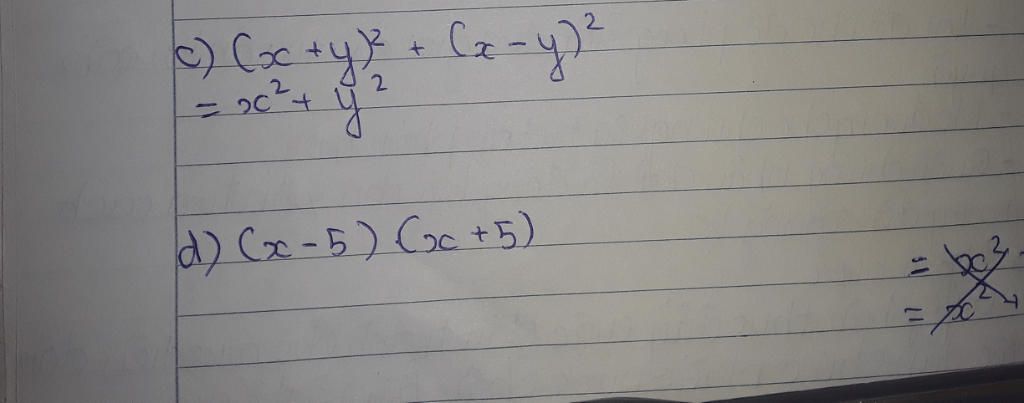 c) (x + y)² + (x - y)²
= x² + y²
d) (x - 5) (x + 5)
= x²
= x²